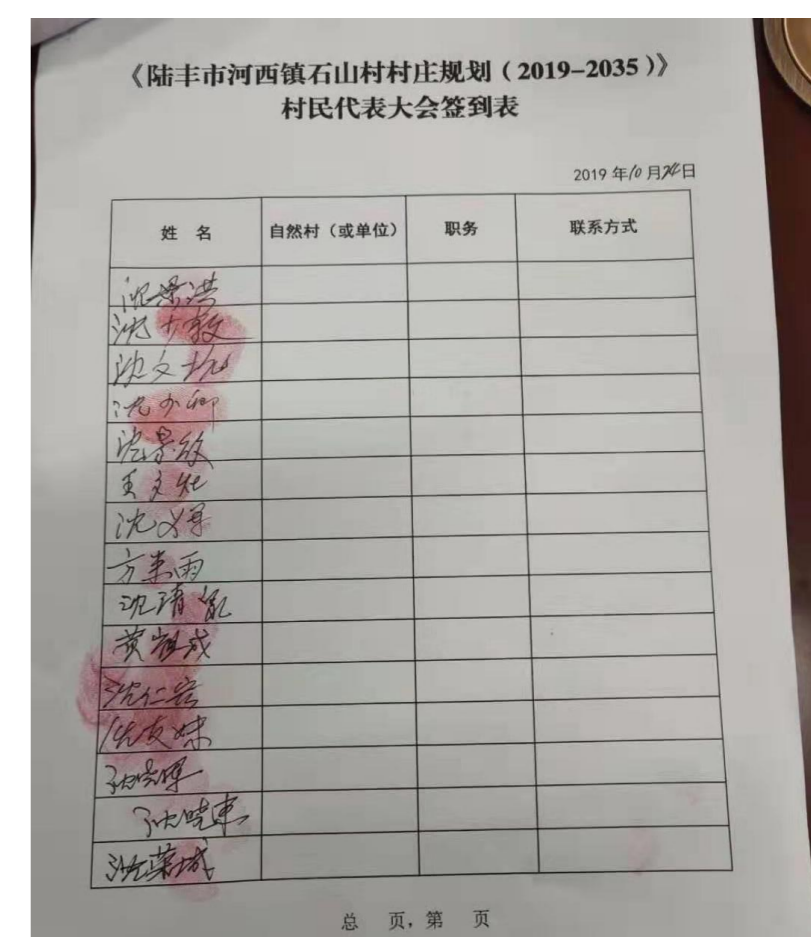 《陆丰市河西镇石山村村庄规划（2019-2035）》
村民代表大会签到表
2019 年10 月24日
姓 名 自然村（或单位） 职务 联系方式
沈景洪
沈少敏
沈文
沈少卿
沈景
王文灶
沈
方来雨
沈靖
黄祖成
沈仁宏
沈友妹
沈晓辉
沈晓东
沈荣城
总 页，第 页